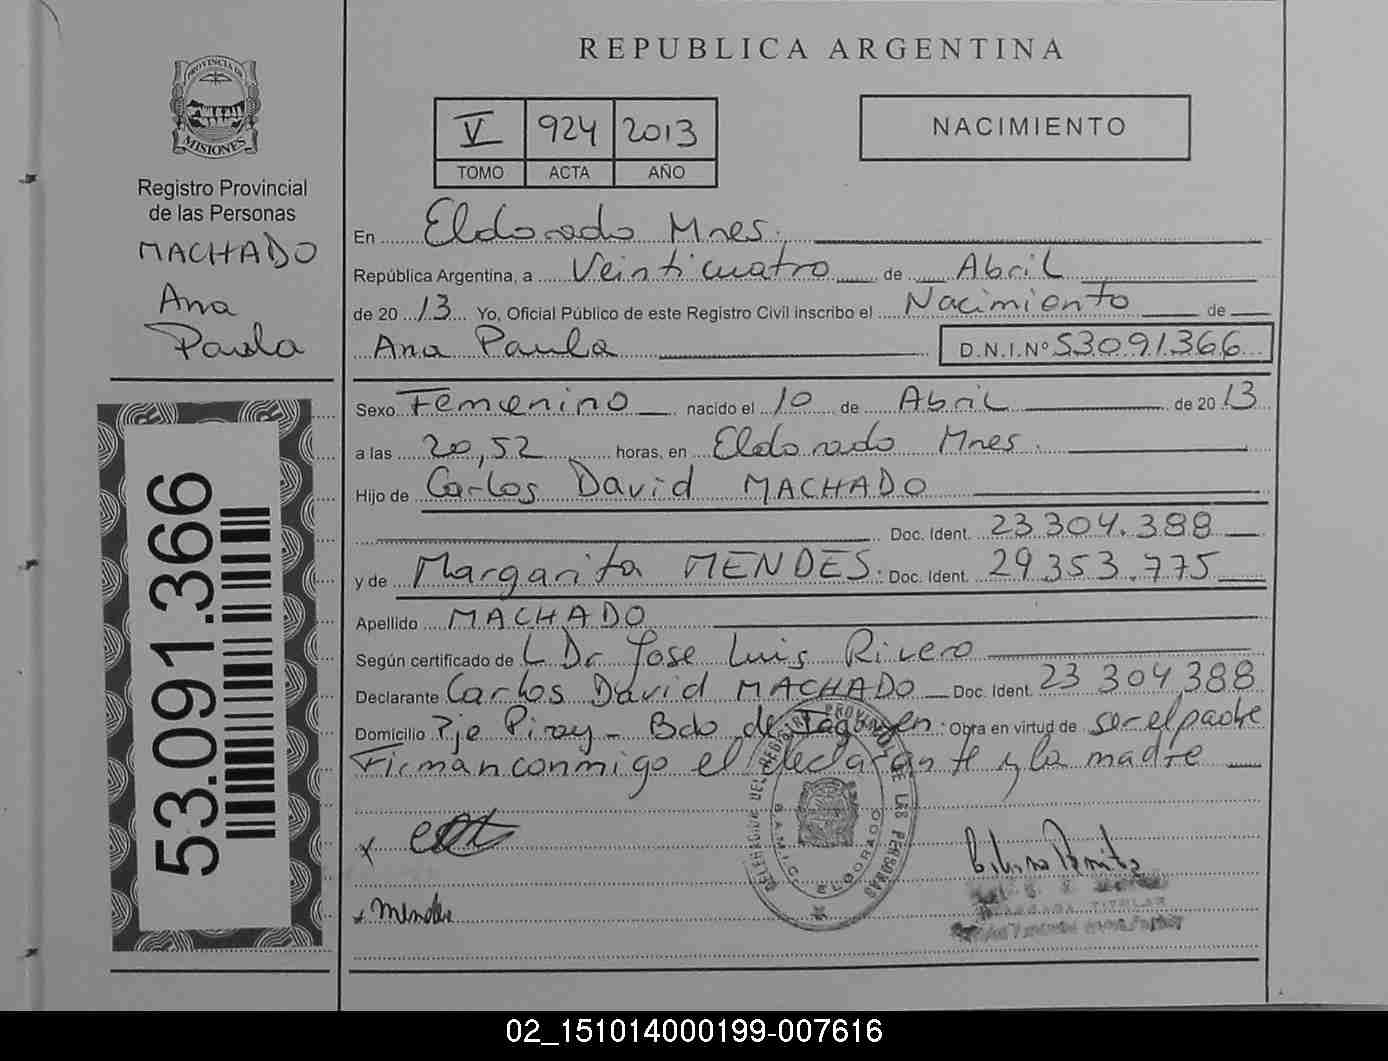 REPUBLICA ARGENTINA
PROVINCIA DE
MISIONES
Registro Provincial
de las Personas
MACHADO
Ana
Paula
53.091.366
V 924 2013
TOMO ACTA AÑO
NACIMIENTO
En Eldorado Mnes.
República Argentina, a Veinticuatro de Abril
de 2013 Yo, Oficial Público de este Registro Civil inscribo el Nacimiento de
Ana Paula D.N.I.Nº 53091366
Sexo Femenino nacido el 10 de Abril de 2013
a las 20,52 horas, en Eldorado Mnes.
Hijo de Carlos David MACHADO
Doc. Ident. 23.304.388
y de Margarita MENDES. Doc. Ident. 29.353.775
Apellido MACHADO
Según certificado de L Dr Jose Luis Rivero
Declarante Carlos David MACHADO Doc. Ident. 23 304,388
Domicilio Pje Piray - Bdo de Obra en virtud de ser el padre
Firman conmigo el declarante y la madre
DELEGACION DEL REGISTRO PROVINCIAL DE LAS PERSONAS
ELDORADO
x
x Mendes
TITULAR
02_151014000199-007616